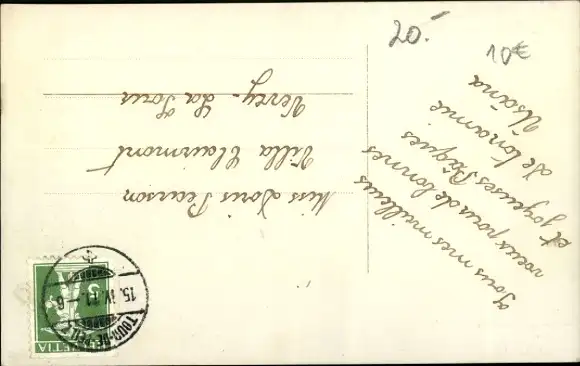 20.-
10€
Tous mes meilleurs
voeux pour de bonnes
et joyeuses Pâques
de ton amie
Miss Doris Pearson
Villa Clairmont
Vevey - La Tour
15.IV.11.-6
TOUR-DE-PEILZ
5
HELVETIA